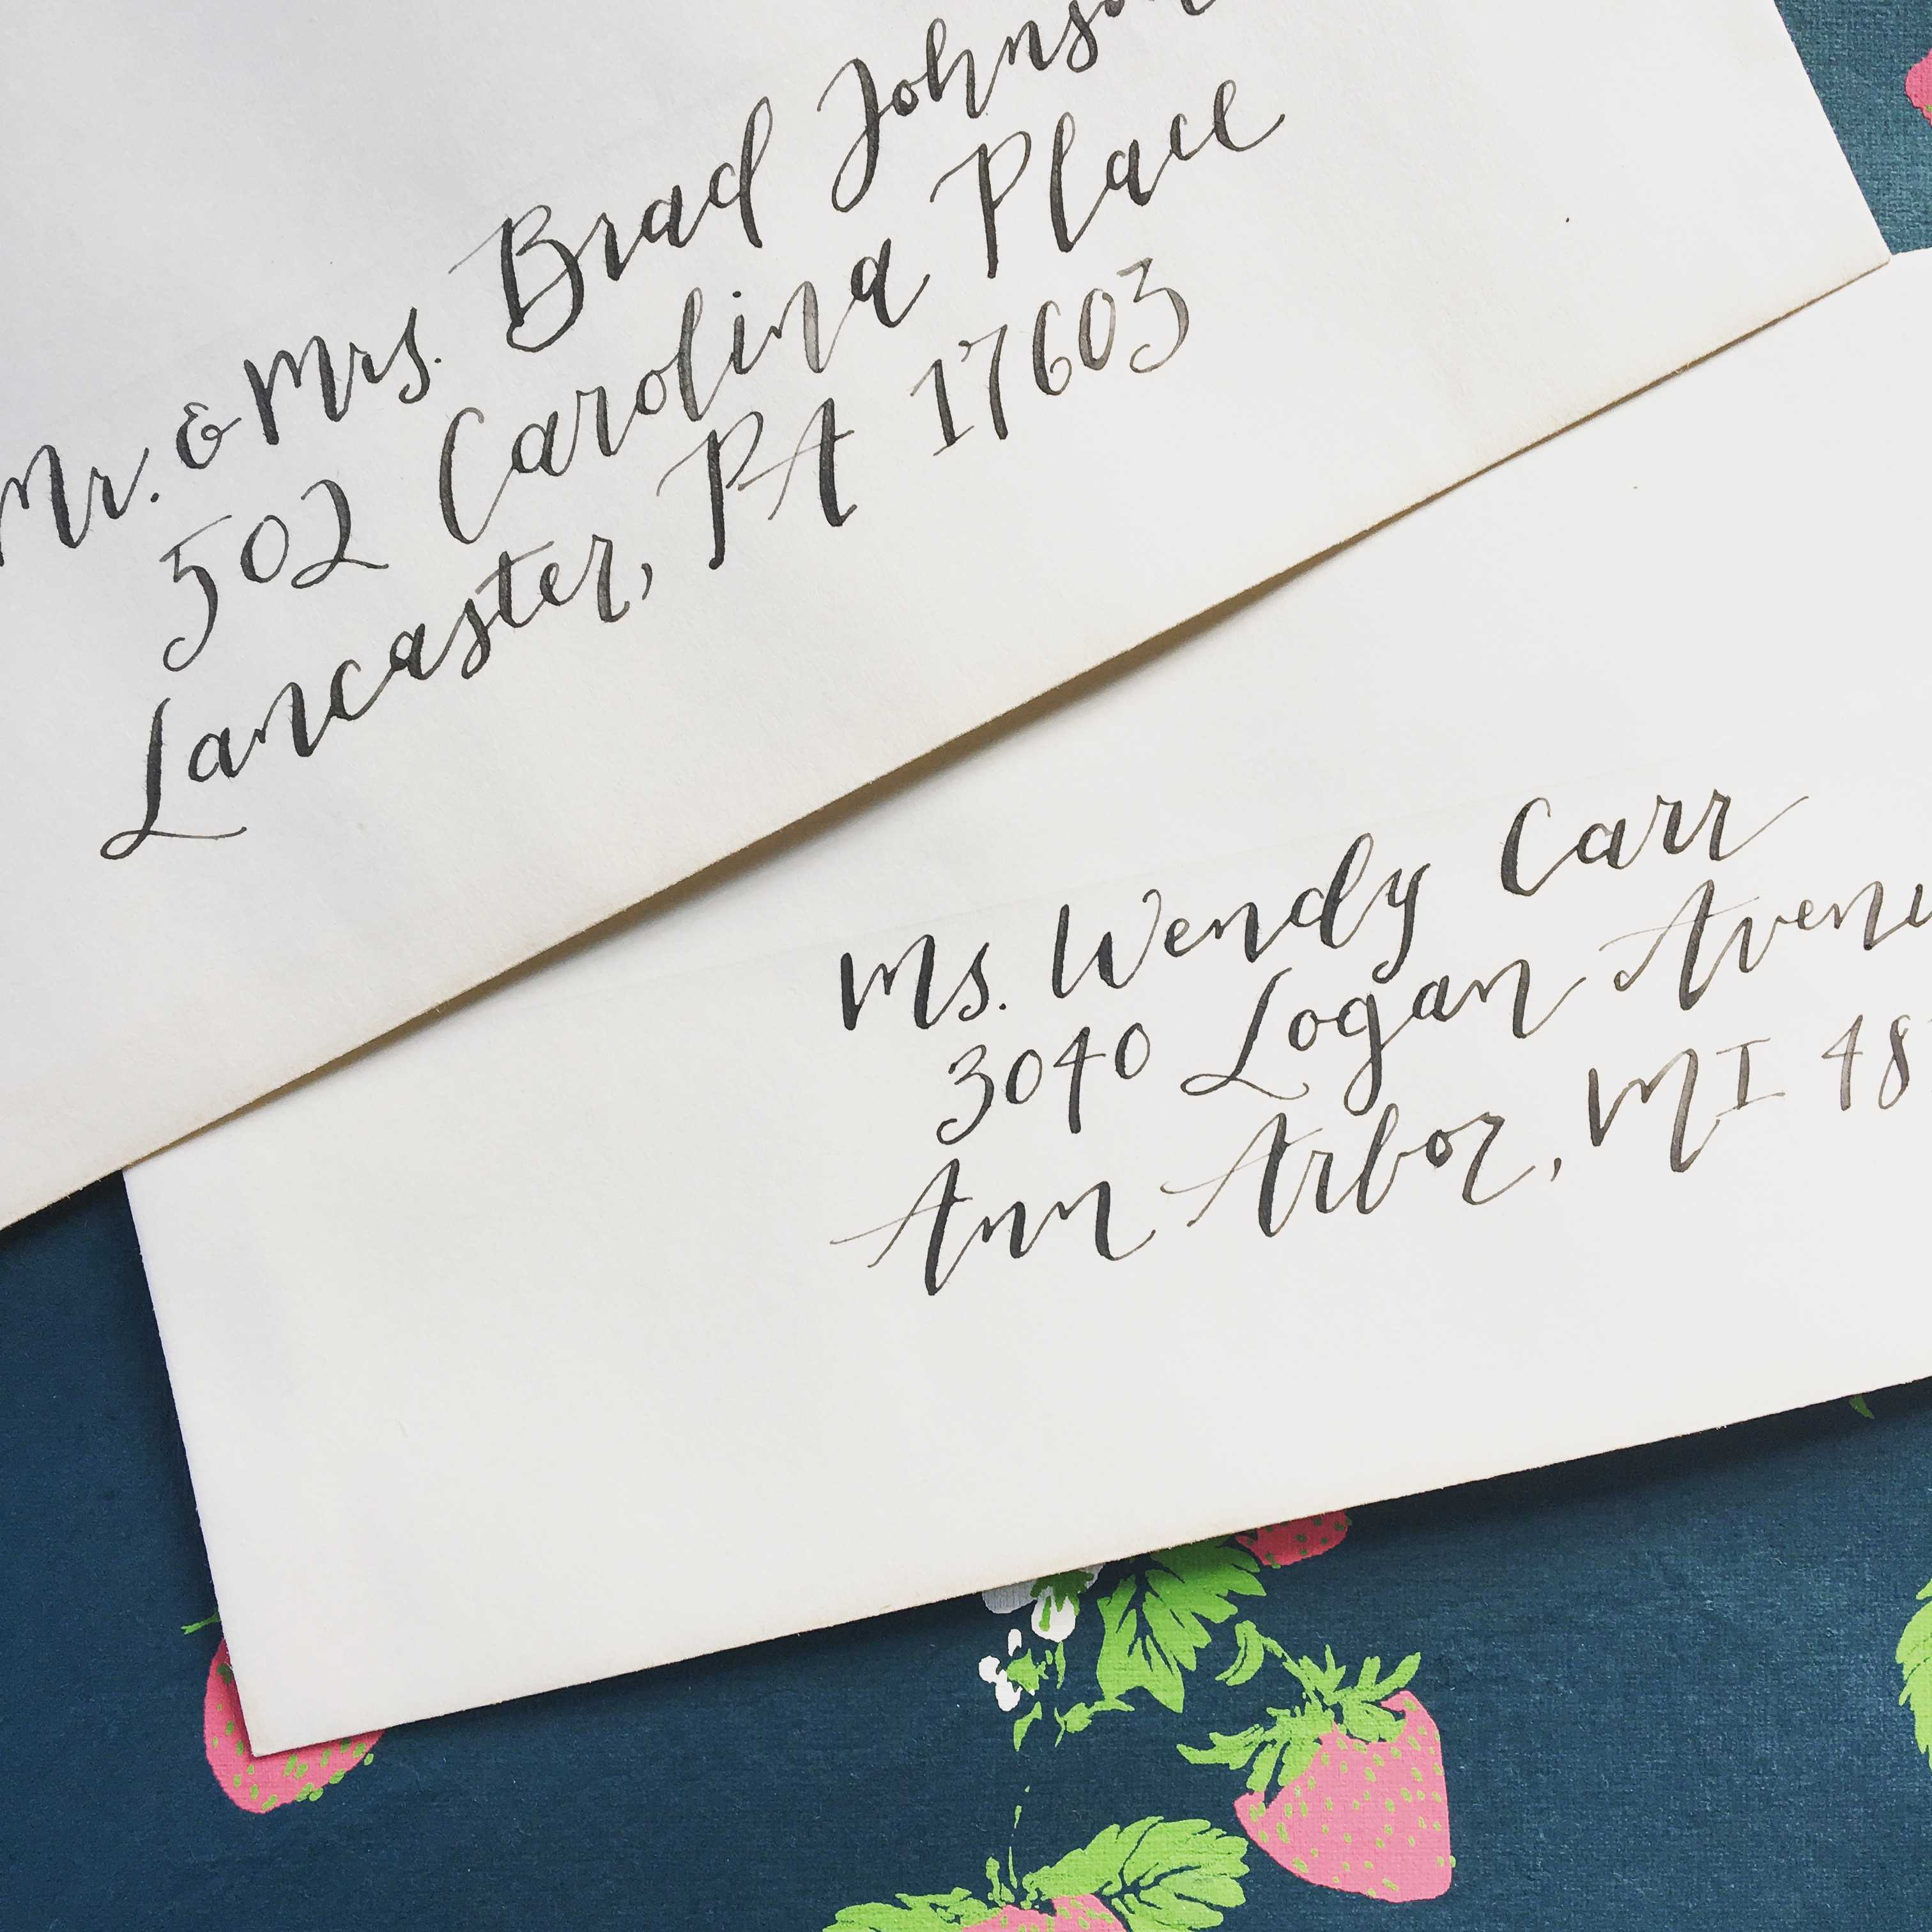 Mr. & Mrs. Brad Johnson
502 Carolina Place
Lancaster, PA 17603
Ms. Wendy Carr
3040 Logan Avenu
Ann Arbor, MI 48